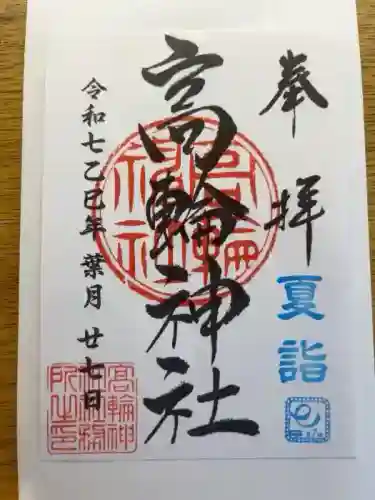 奉拝
夏詣
高輪神社
令和七乙巳年 葉月 廿七日
高輪神社
高輪神社務所之印